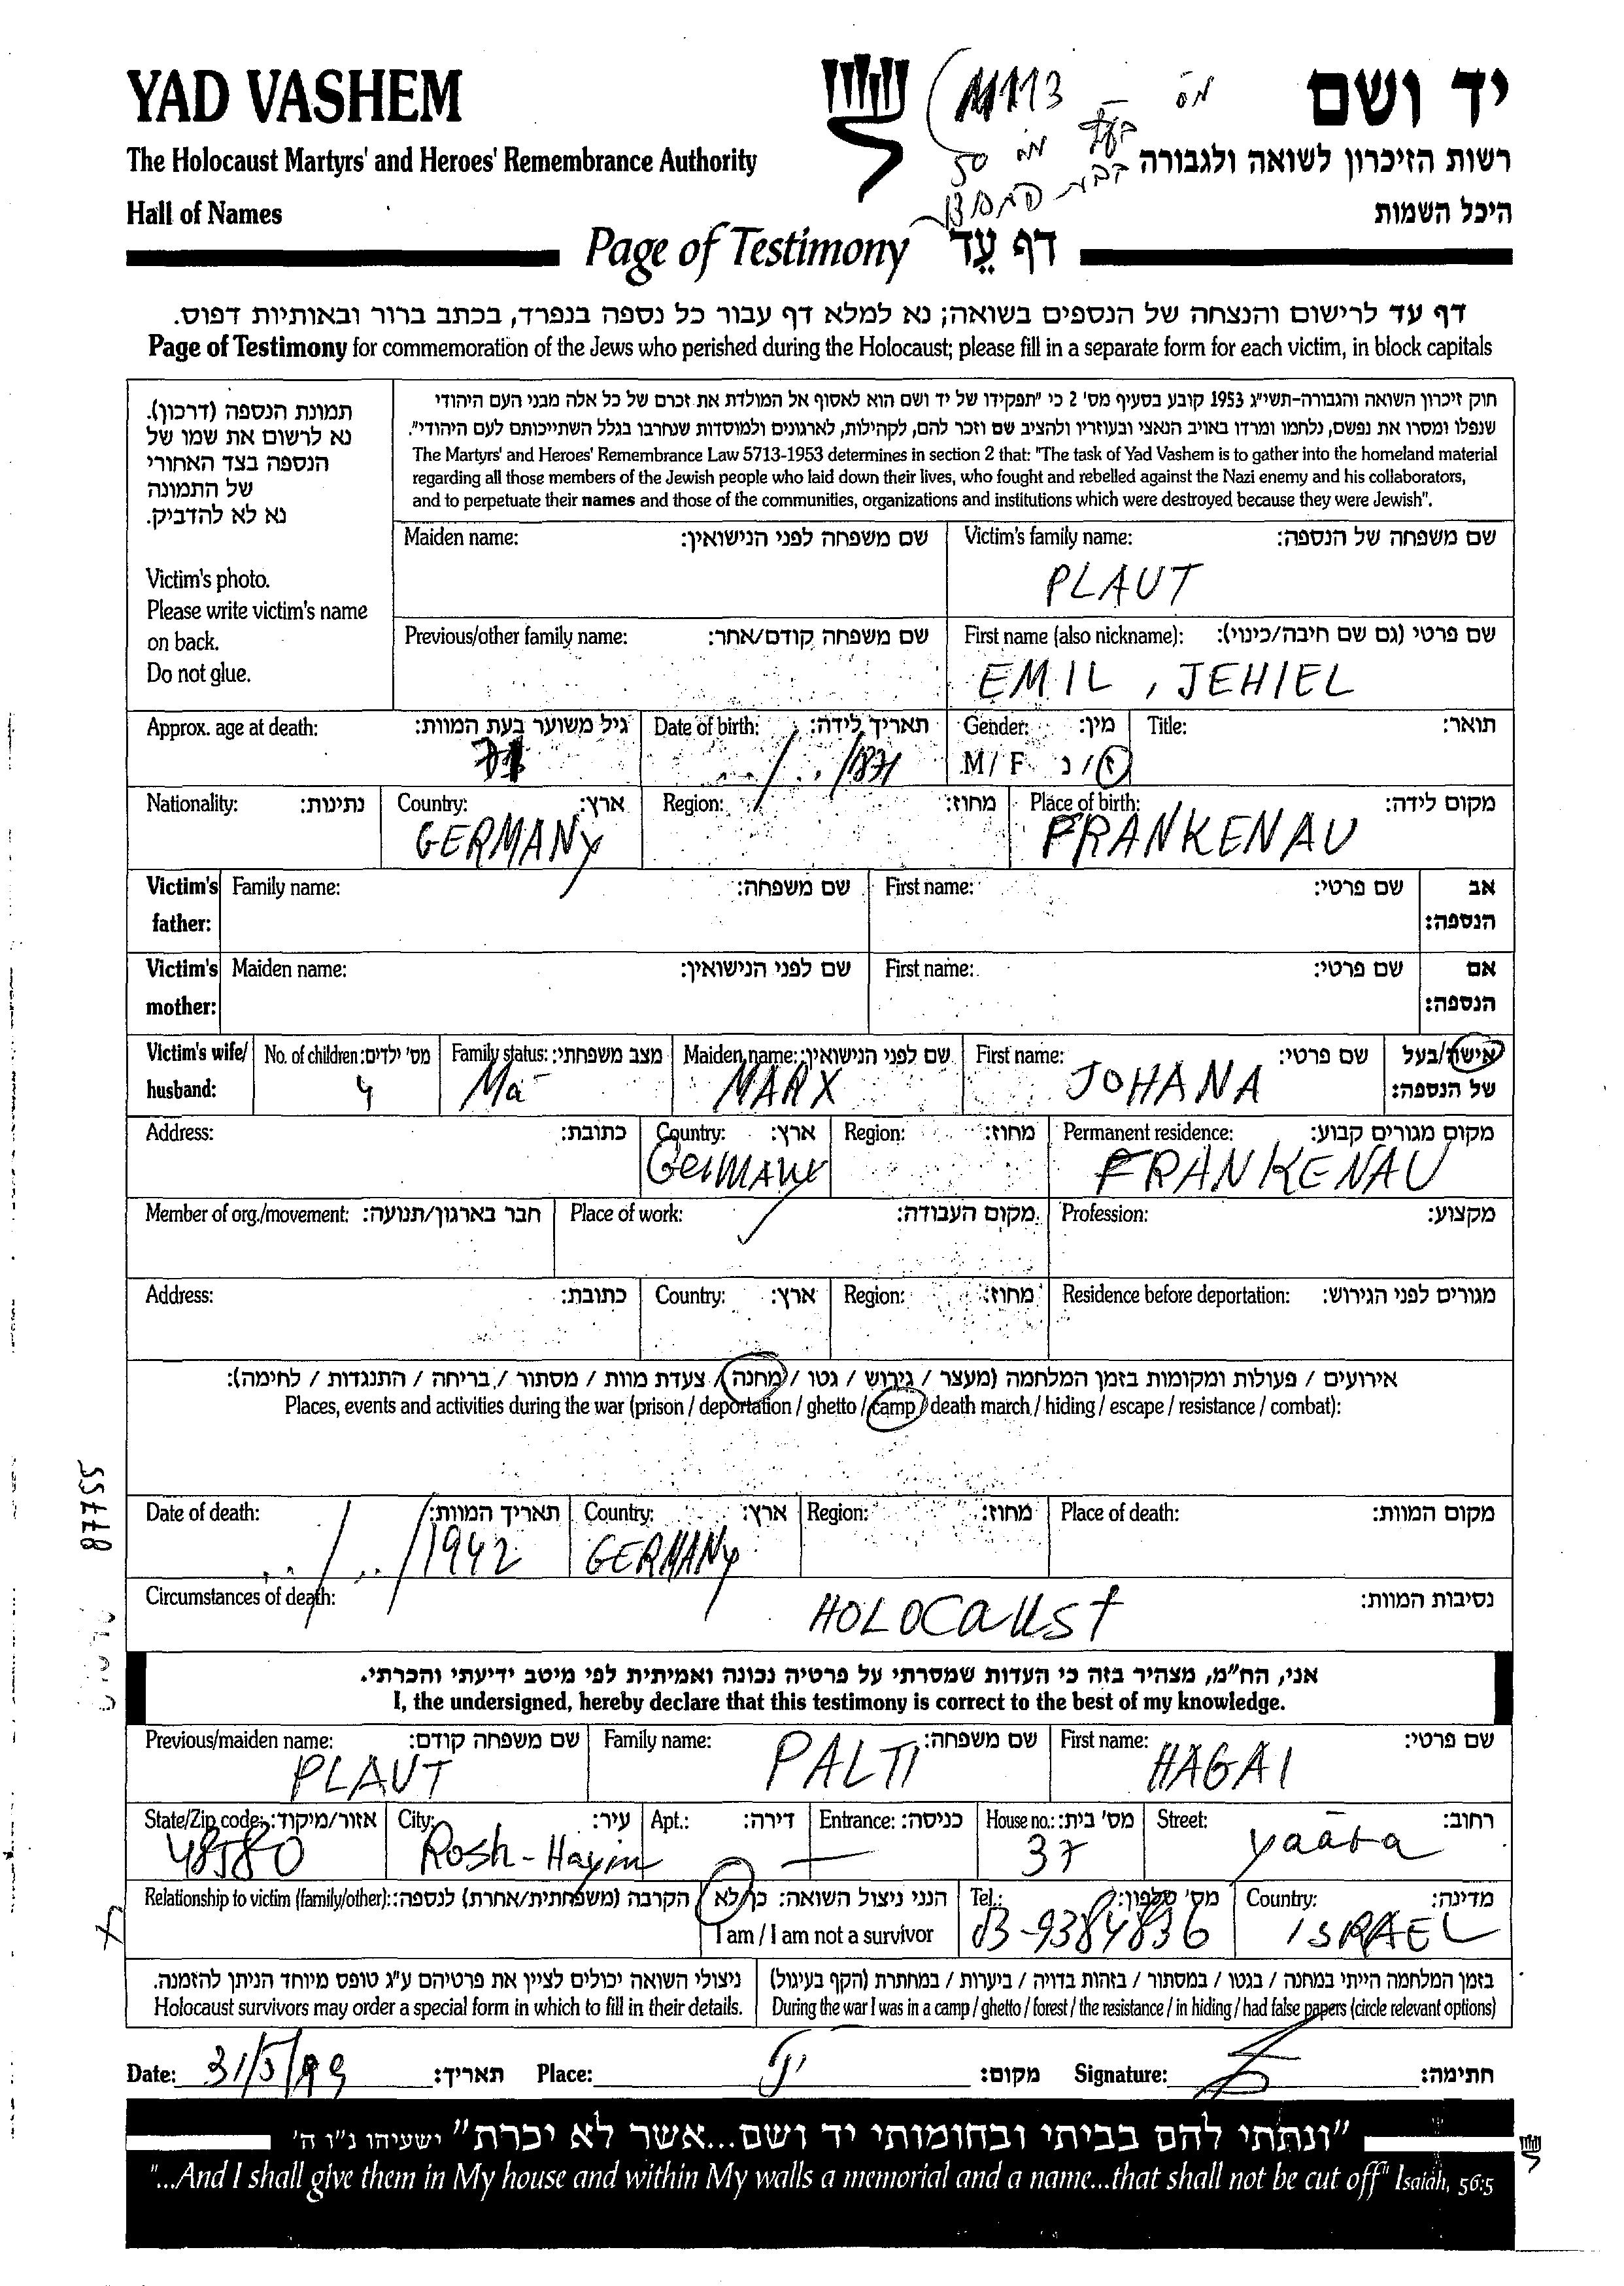 YAD VASHEM
יד ושם
M113
The Holocaust Martyrs' and Heroes' Remembrance Authority
רשות הזיכרון לשואה ולגבורה
50
Hall of Names
היכל השמות
Page of Testimony דף עֵד
דף עד לרישום והנצחה של הנספים בשואה; נא למלא דף עבור כל נספה בנפרד, בכתב ברור ובאותיות דפוס.
Page of Testimony for commemoration of the Jews who perished during the Holocaust; please fill in a separate form for each victim, in block capitals
תמונת הנספה (דרכון).
נא לרשום את שמו של
הנספה בצד האחורי
של התמונה
נא לא להדביק.
Victim's photo.
Please write victim's name
on back.
Do not glue.
חוק זיכרון השואה והגבורה-תשי"ג 1953 קובע בסעיף מס' 2 כי "תפקידו של יד ושם הוא לאסוף אל המולדת את זכרם של כל אלה מבני העם היהודי
שנפלו ומסרו את נפשם, נלחמו ומרדו באויב הנאצי ובעוזריו ולהציב שם וזכר להם, לקהילות, לארגונים ולמוסדות שנחרבו בגלל השתייכותם לעם היהודי".
The Martyrs' and Heroes' Remembrance Law 5713-1953 determines in section 2 that: "The task of Yad Vashem is to gather into the homeland material
regarding all those members of the Jewish people who laid down their lives, who fought and rebelled against the Nazi enemy and his collaborators,
and to perpetuate their names and those of the communities, organizations and institutions which were destroyed because they were Jewish".
Maiden name: שם משפחה לפני הנישואין: Victim's family name: שם משפחה של הנספה:
PLAUT
Previous/other family name: שם משפחה קודם/אחר: First name (also nickname): שם פרטי (גם שם חיבה/כינוי):
EMIL, JEHIEL
Approx. age at death: גיל משוער בעת המוות: Date of birth: תאריך לידה: Gender: מין: Title: תואר:
71 ../../1871 M/F ז/נ
Nationality: נתינות: Country: ארץ: Region: מחוז: Place of birth: מקום לידה:
GERMANY FRANKENAU
Victim's father: Family name: שם משפחה: First name: שם פרטי: אב הנספה:
Victim's mother: Maiden name: שם לפני הנישואין: First name: שם פרטי: אם הנספה:
Victim's wife/ husband: No. of children: מס' ילדים: Family status: מצב משפחתי: Maiden name: שם לפני הנישואין: First name: שם פרטי: אישה/בעל של הנספה:
4 Ma MARX JOHANA
Address: כתובת: Country: ארץ: Region: מחוז: Permanent residence: מקום מגורים קבוע:
GERMANY FRANKENAU
Member of org./movement: חבר בארגון/תנועה: Place of work: מקום העבודה: Profession: מקצוע:
Address: כתובת: Country: ארץ: Region: מחוז: Residence before deportation: מגורים לפני הגירוש:
אירועים / פעולות ומקומות בזמן המלחמה (מעצר / גירוש / גטו / מחנה / צעדת מוות / מסתור / בריחה / התנגדות / לחימה):
Places, events and activities during the war (prison / deportation / ghetto / camp / death march / hiding / escape / resistance / combat):
Date of death: תאריך המוות: Country: ארץ: Region: מחוז: Place of death: מקום המוות:
../../1942 GERMANY
Circumstances of death: נסיבות המוות:
HOLOCAUST
55778
אני, הח"מ, מצהיר בזה כי העדות שמסרתי על פרטיה נכונה ואמיתית לפי מיטב ידיעתי והכרתי.
I, the undersigned, hereby declare that this testimony is correct to the best of my knowledge.
Previous/maiden name: שם משפחה קודם: Family name: שם משפחה: First name: שם פרטי:
PLAUT PALTI HAGAI
State/Zip code: אזור/מיקוד: City: עיר: Apt.: דירה: Entrance: כניסה: House no.: מס' בית: Street: רחוב:
48580 Rosh-Hayin — 37 yaara
Relationship to victim (family/other): הקרבה (משפחתית/אחרת) לנספה: הנני ניצול השואה: כן/לא Tel.: מס' טלפון: Country: מדינה:
I am / I am not a survivor 03-9384836 ISRAEL
ניצולי השואה יכולים לציין את פרטיהם ע"ג טופס מיוחד הניתן להזמנה.
Holocaust survivors may order a special form in which to fill in their details.
בזמן המלחמה הייתי במחנה / בגטו / במסתור / בזהות בדויה / ביערות / במחתרת (הקף בעיגול)
During the war I was in a camp / ghetto / forest / the resistance / in hiding / had false papers (circle relevant options)
Date: 31/5/99 תאריך: Place: מקום: Signature: חתימה:
"ונתתי להם בביתי ובחומותי יד ושם...אשר לא יכרת" ישעיהו נ"ו ה'
"...And I shall give them in My house and within My walls a memorial and a name...that shall not be cut off" Isaiah, 56:5